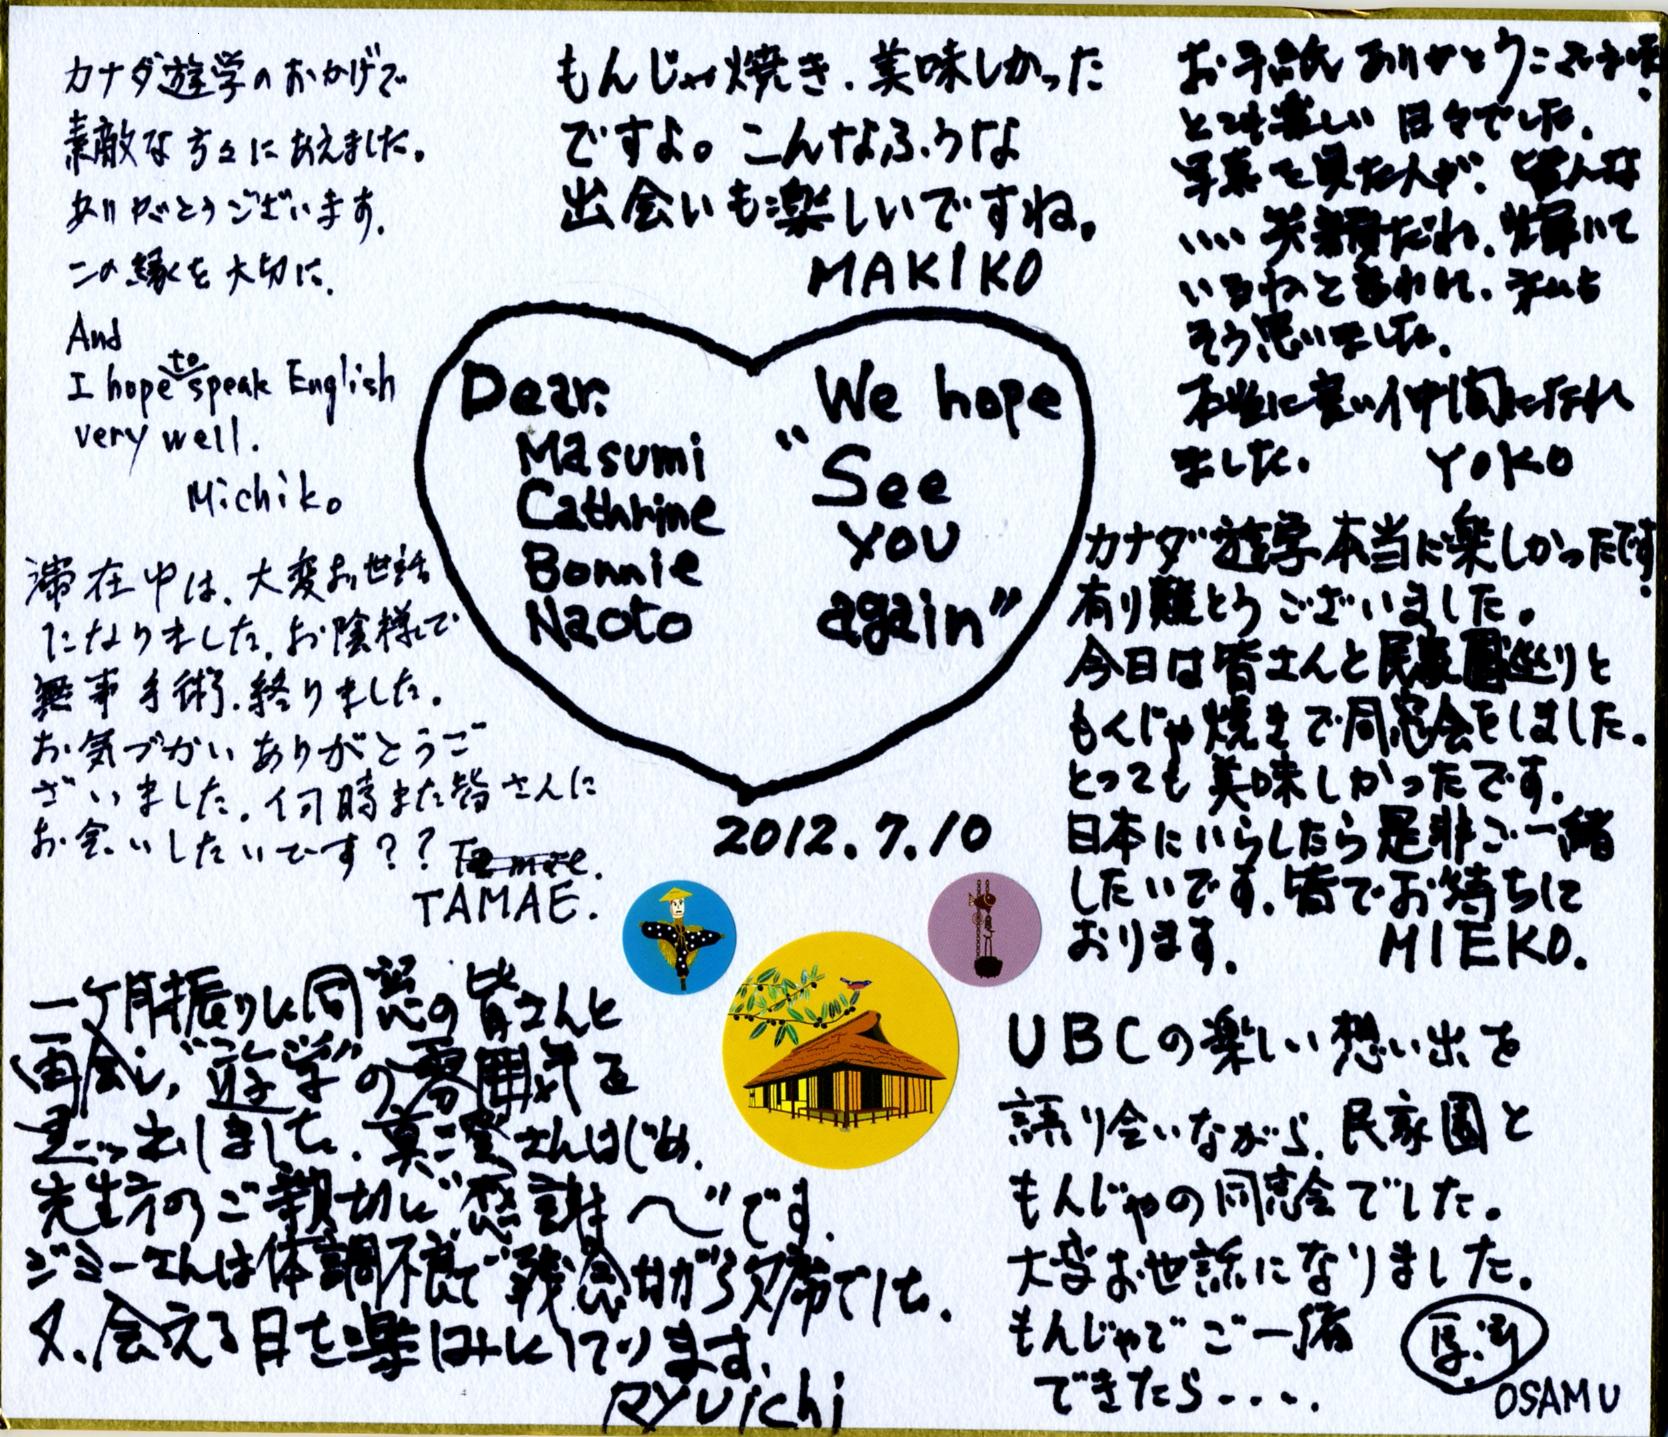 カナダ遊学のおかげで
素敵な方々にあえました。
ありがとうございます。
この縁を大切に。
And
I hope to speak English
very well.
Michiko
もんじゃ焼き、美味しかった
ですよ。こんなふうな
出会いも楽しいですね。
MAKIKO
お手紙ありがとうございました。
とても楽しい日々でした。
写真を見た人が、皆んな
いい笑顔だね、輝いて
いるねと言われ、私も
そう思いました。
本当に良い仲間になれ
ました。 YOKO
Dear.
Masumi
Cathrine
Bonnie
Naoto
We hope
"See
you
again"
2012.7.10
滞在中は、大変お世話
になりました。お陰様で
無事手術、終りました。
お気づかいありがとうご
ざいました。何時また皆さんに
お会いしたいです??
TAMAE.
カナダ遊学本当に楽しかったです。
有り難とうございました。
今日は皆さんと民家園巡りと
もんじゃ焼きで同窓会をしました。
とっても美味しかったです。
日本にいらしたら是非ご一緒
したいです。皆でお待ちに
おります。 MIEKO.
一ヶ月振りに同窓の皆さんと
再会し、"遊学"の雰囲気を
思い出しました。真澄さんはじめ、
先生方のご親切に"感謝へ"です。
ジミーさんは体調不良で残念ながら欠席でした。
又、会える日を楽しみにしております。
RYUichi
UBCの楽しい想い出を
語り合いながら、民家園と
もんじゃの同窓会でした。
大変お世話になりました。
もんじゃでご一緒
できたら・・・・.
OSAMU